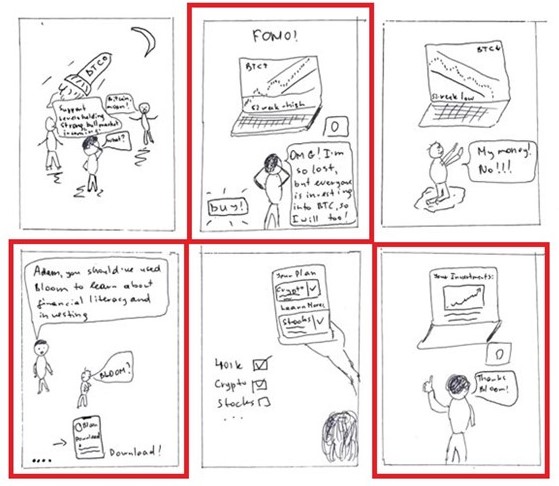 BTC
Bitcoin
moon!
Support
Levels holding
Strong bull market
incoming!
what?
FOMO!
BTC↑
52 week high
OMG! I'm
so lost,
but everyone
is investing
into BTC, so
I will too!
buy!
BTC↓
52 week low
My money!
No!!!
Adam, you should've used
Bloom to learn about
financial literacy and
investing
BLOOM?
Bloom
Download
Download!
Your Plan
Crypto
Learn More:
Stocks
401k
Crypto
Stocks
...
Your Investments:
Thanks
Bloom!